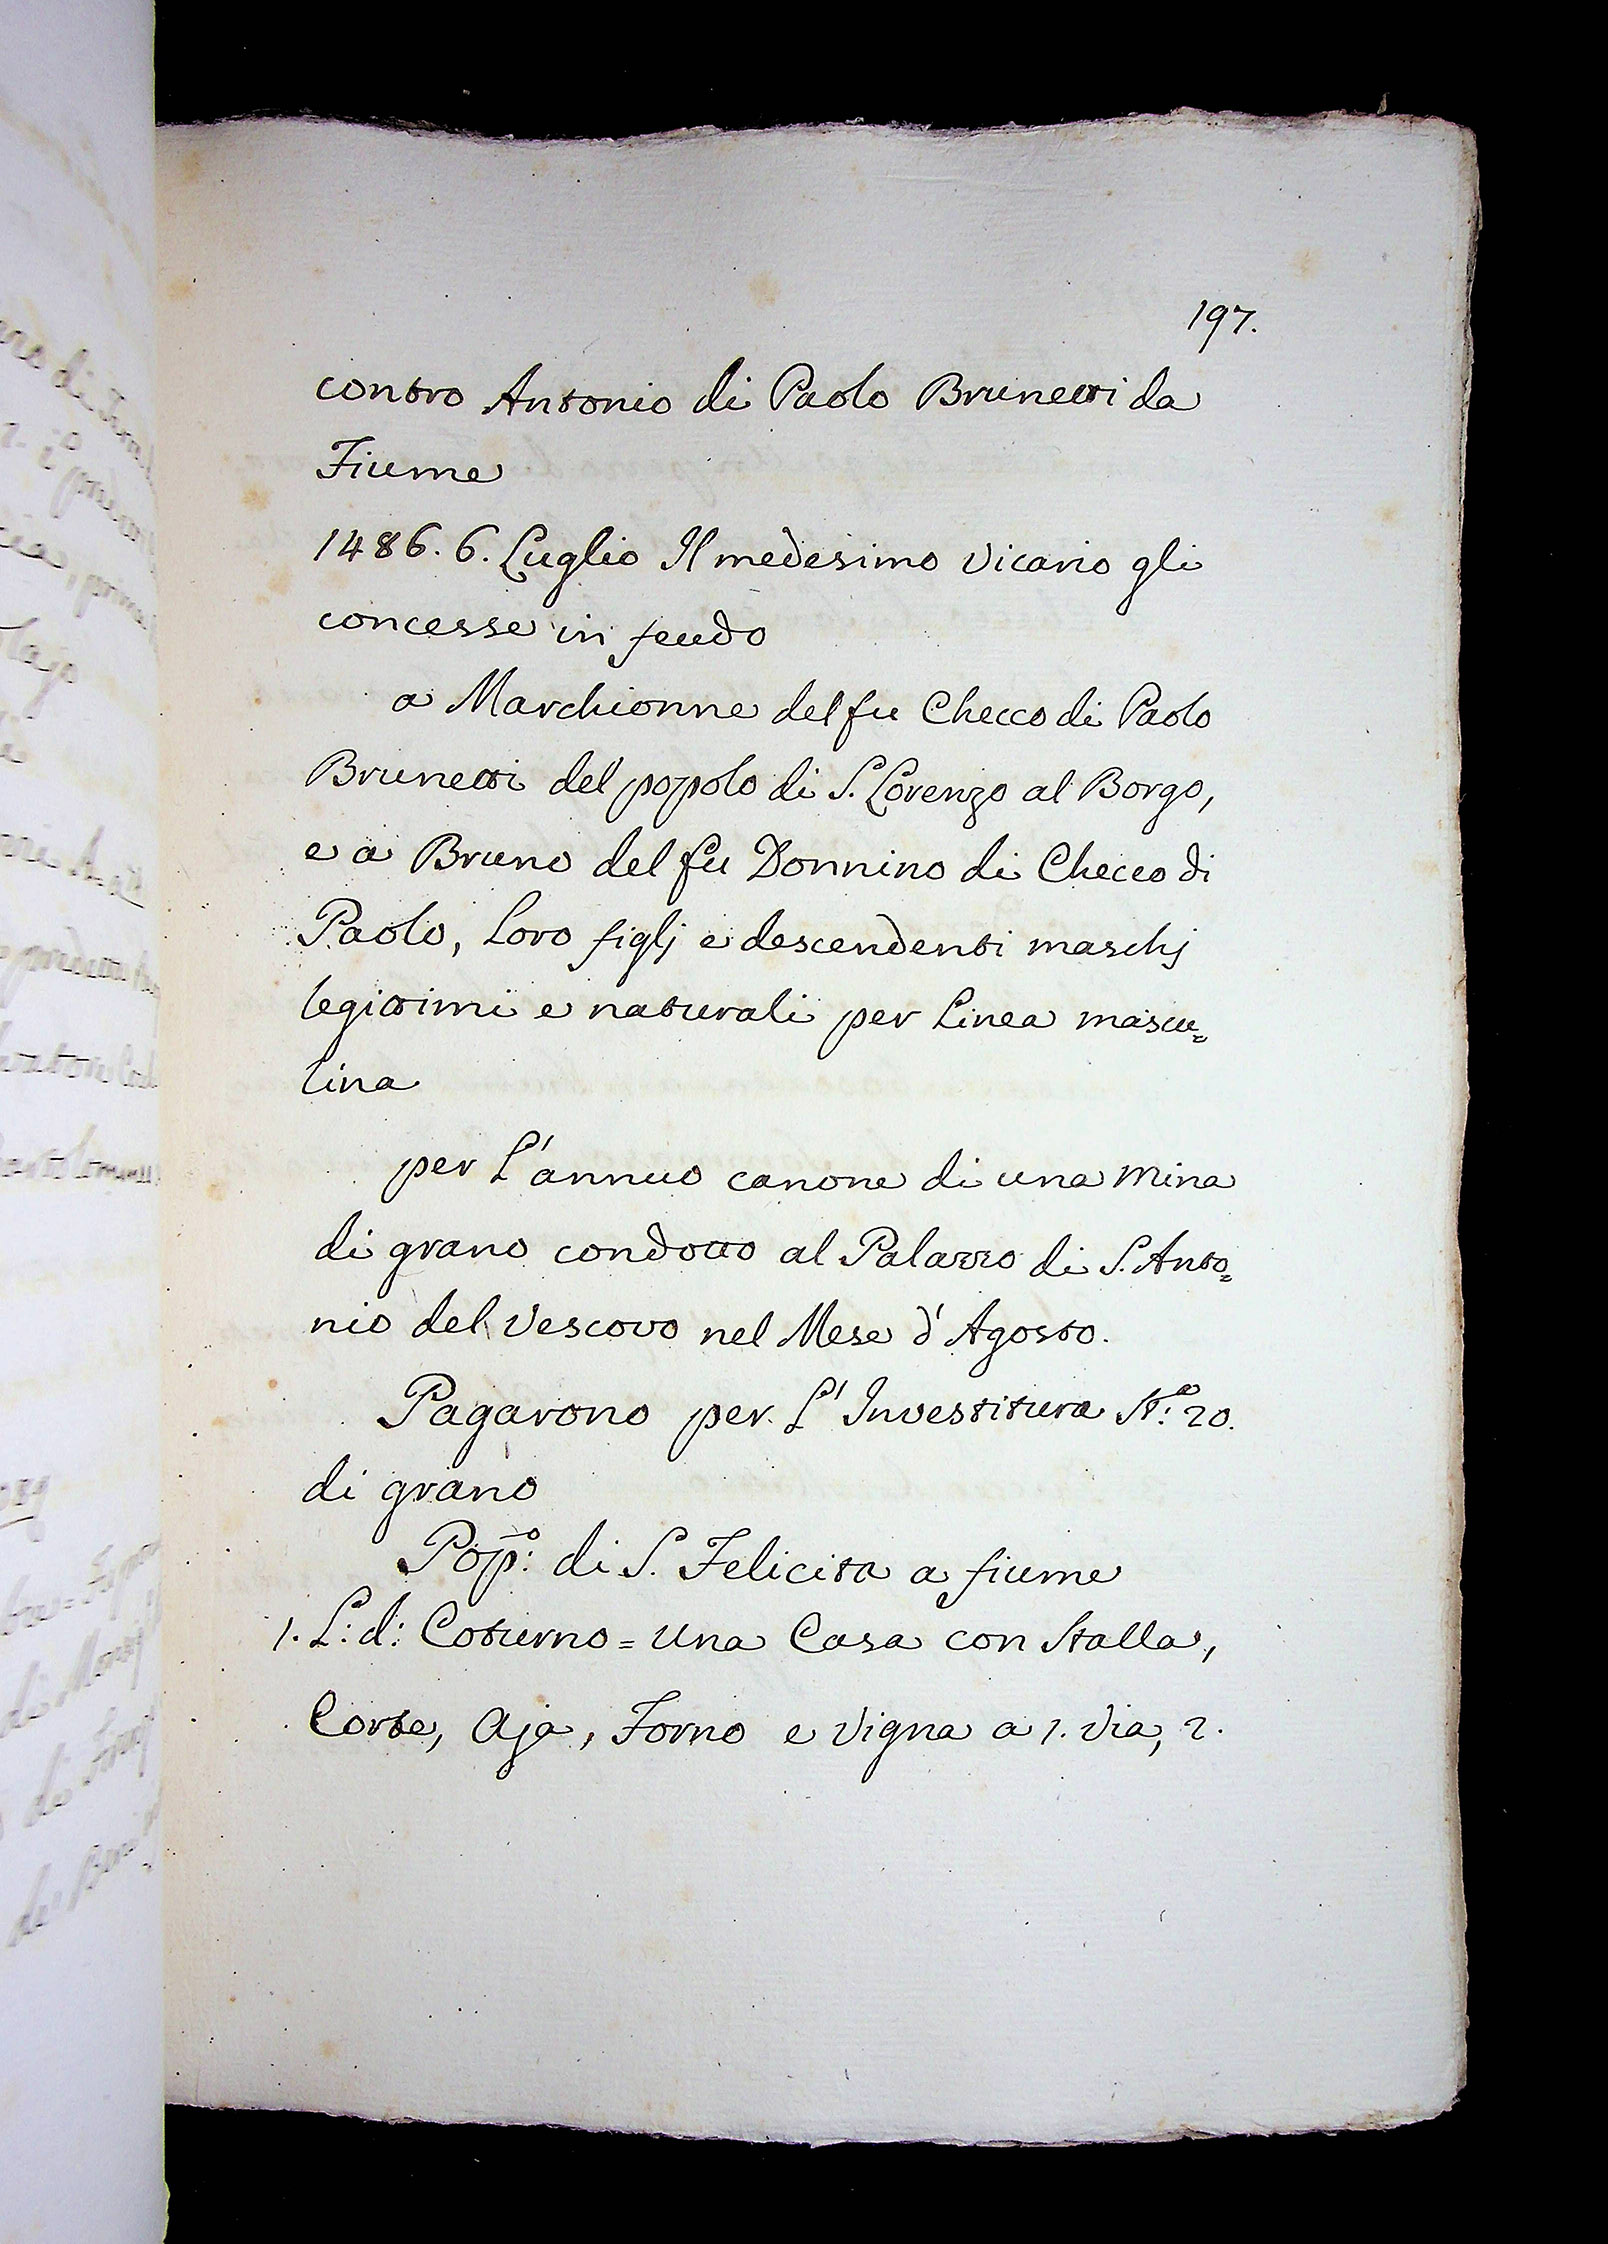 197.
contro Antonio di Paolo Brunetti da
Fiume
1486. 6. Luglio Il medesimo Vicario gli
concesse in feudo
a Marchionne del fu Checco di Paolo
Brunetti del popolo di S. Lorenzo al Borgo,
e a Bruno del fu Donnino di Checco di
Paolo, Loro figlj e descendenti maschj
legittimi e naturali per Linea mascu=
lina
per L'annuo canone di una mina
di grano condotto al Palazzo di S. Anto=
nio del Vescovo nel Mese d'Agosto.
Pagarono per L'Investitura St.ª 20.
di grano
Pop.º: di S. Felicita a fiume
1. L: d: Coturno = Una Casa con Stalla,
Corte, Aja, Forno e Vigna a 1. Via, 2.